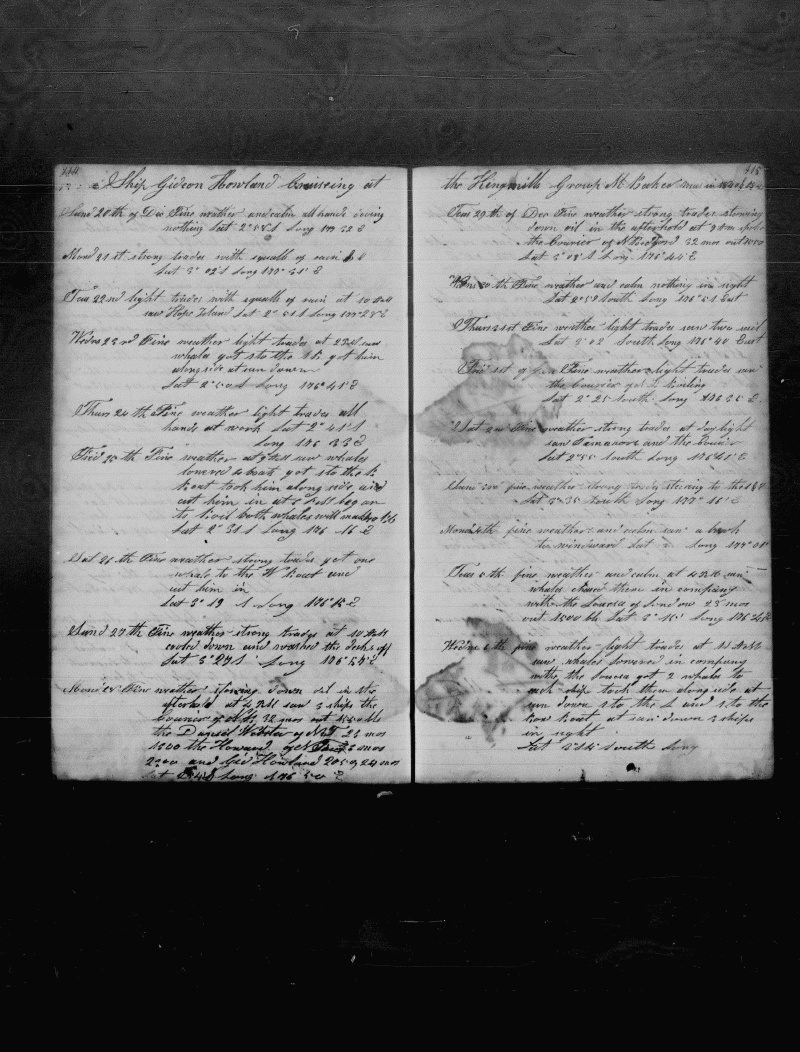 114
Ship Gideon Howland Cruiseing at
Sund 20th of Dec Fine wether and calm all hands doving
nothing Lat 2° 58 S Long 177 32 E
Mond 21st strong trades with squalls of rain
Lat 3° 03 S Long 177° 31' E
Tues 22nd light trades with squalls of rain at 10 AM
saw Hope Island Lat 2° 51 S Long 177° 23' E
Wedns 23rd Fine weather light trades at 2 PM saw
whales got 1 to the got him
along side at sun down
Lat 2° 50 S Long 176° 41' E
Thurs 24th Fine weather light trades all
hands at work Lat 2° 41 S
Long 176 33 E
Frid 25th Fine weather at PM saw whales
lowered 4 boats got 1 to the
Boat took him along side and
cut him in at PM began
to boil both whales will make
Lat 2° 31 S Long 176 16 E
Sat 26th Fine weather strong trades got one
whale to the W Boat and
cut him in
Lat 3° 19 S Long 176°
Sund 27th Fine weather strong trades at 10 AM
cooled down and washed the decks off
Lat 3° 29 S Long 176
Mond 28 Fine weather stowing down oil in the
afterhold at 4 PM saw 3 ships the
Courier of N B 32 mos out 1550 bbls
the Daniel Webster of N T 23 mos
1500 the Howard of N
2200 and Gid Howland 2050 24 mos
Lat Long 176 50 E
115
the Kingsmills Group M Baker
Tues 29th of Dec Fine weather strong trades stowing
down oil in the afterhold at spoke
the Courier of N Bedford 32 mos out 1550
Lat 3° 08 S Long 176° 44 E
Wedns 30th Fine weather and calm nothing in sight
Lat 2° 59 South Long 176° 51 East
Thurs 31st Fine weather light trades saw two sail
Lat 3° 02 South Long 176° 40 East
Frid 1st of Fine weather light trades saw
the Courier boiling
Lat 2° 25 South Long 176 35 E
Sat 2nd Fine weather strong trades at day light
saw and the Courier
Lat 2° 55 South Long 176° 41 E
Sund 3rd fine weather strong trades steering to the
Lat 3° 35 South Long 177° 16 E
Mond 4th fine weather and calm saw a
to windward Lat Long 177° 01'
Tues 5th fine weather and calm at 4 PM saw
whales chased them in company
with the Lousea of London 23 mos
out 1500 bbls Lat 3° Long 176 36 E
Wedns 6th fine weather light trades at
saw whales lowered in company
with the Lousea got 2 whales to
each ship took them along side at
sun down 1 to the L and 1 to the
Bow Boat at sun down 3 ships
in sight
Lat South Long